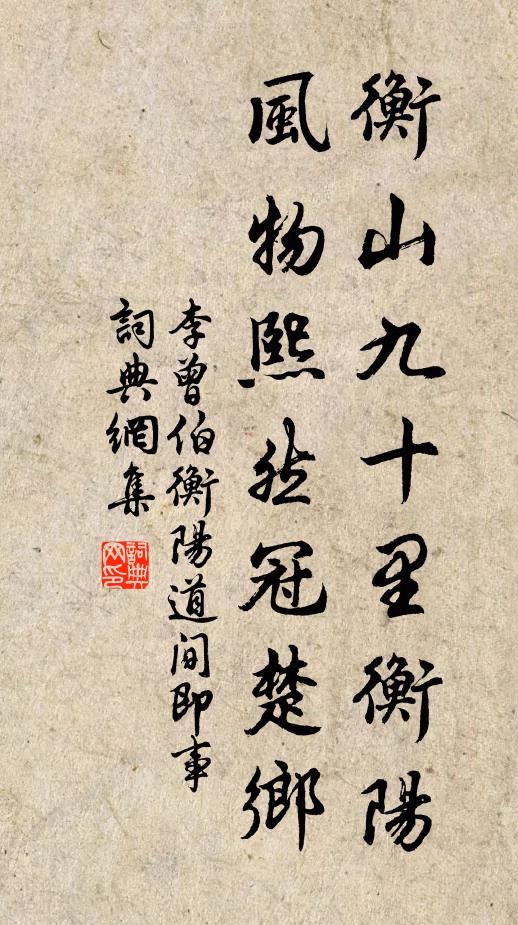 衡山九十里衡陽
風物熙然冠楚鄉
李曾伯衡陽道間即事
詞典網集
詞典網印